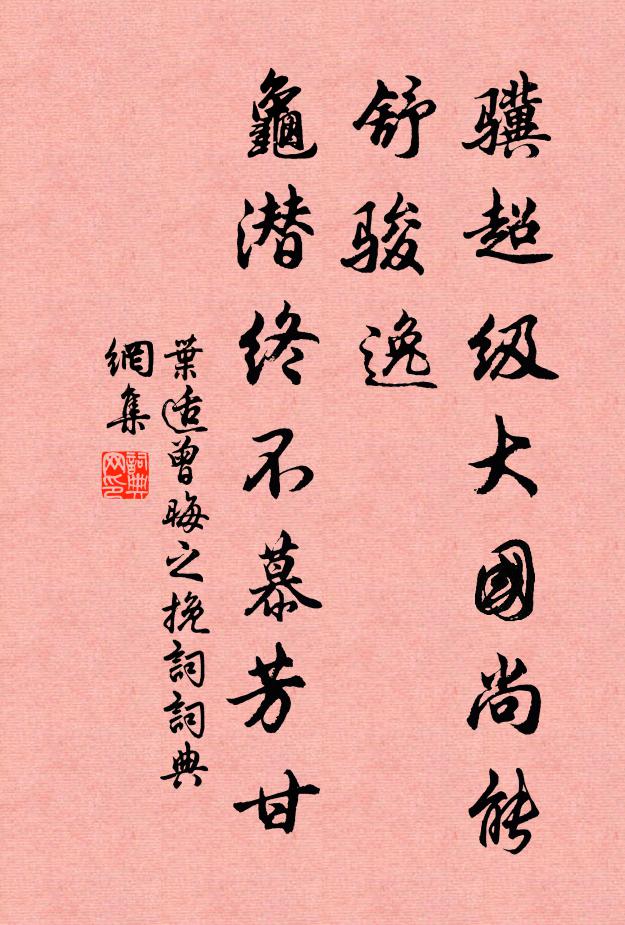 骥超级大國尚能
舒骏逸
龜潜终不慕芳甘
葉适曾晦之挽詞詞典
網集
詞典
网印